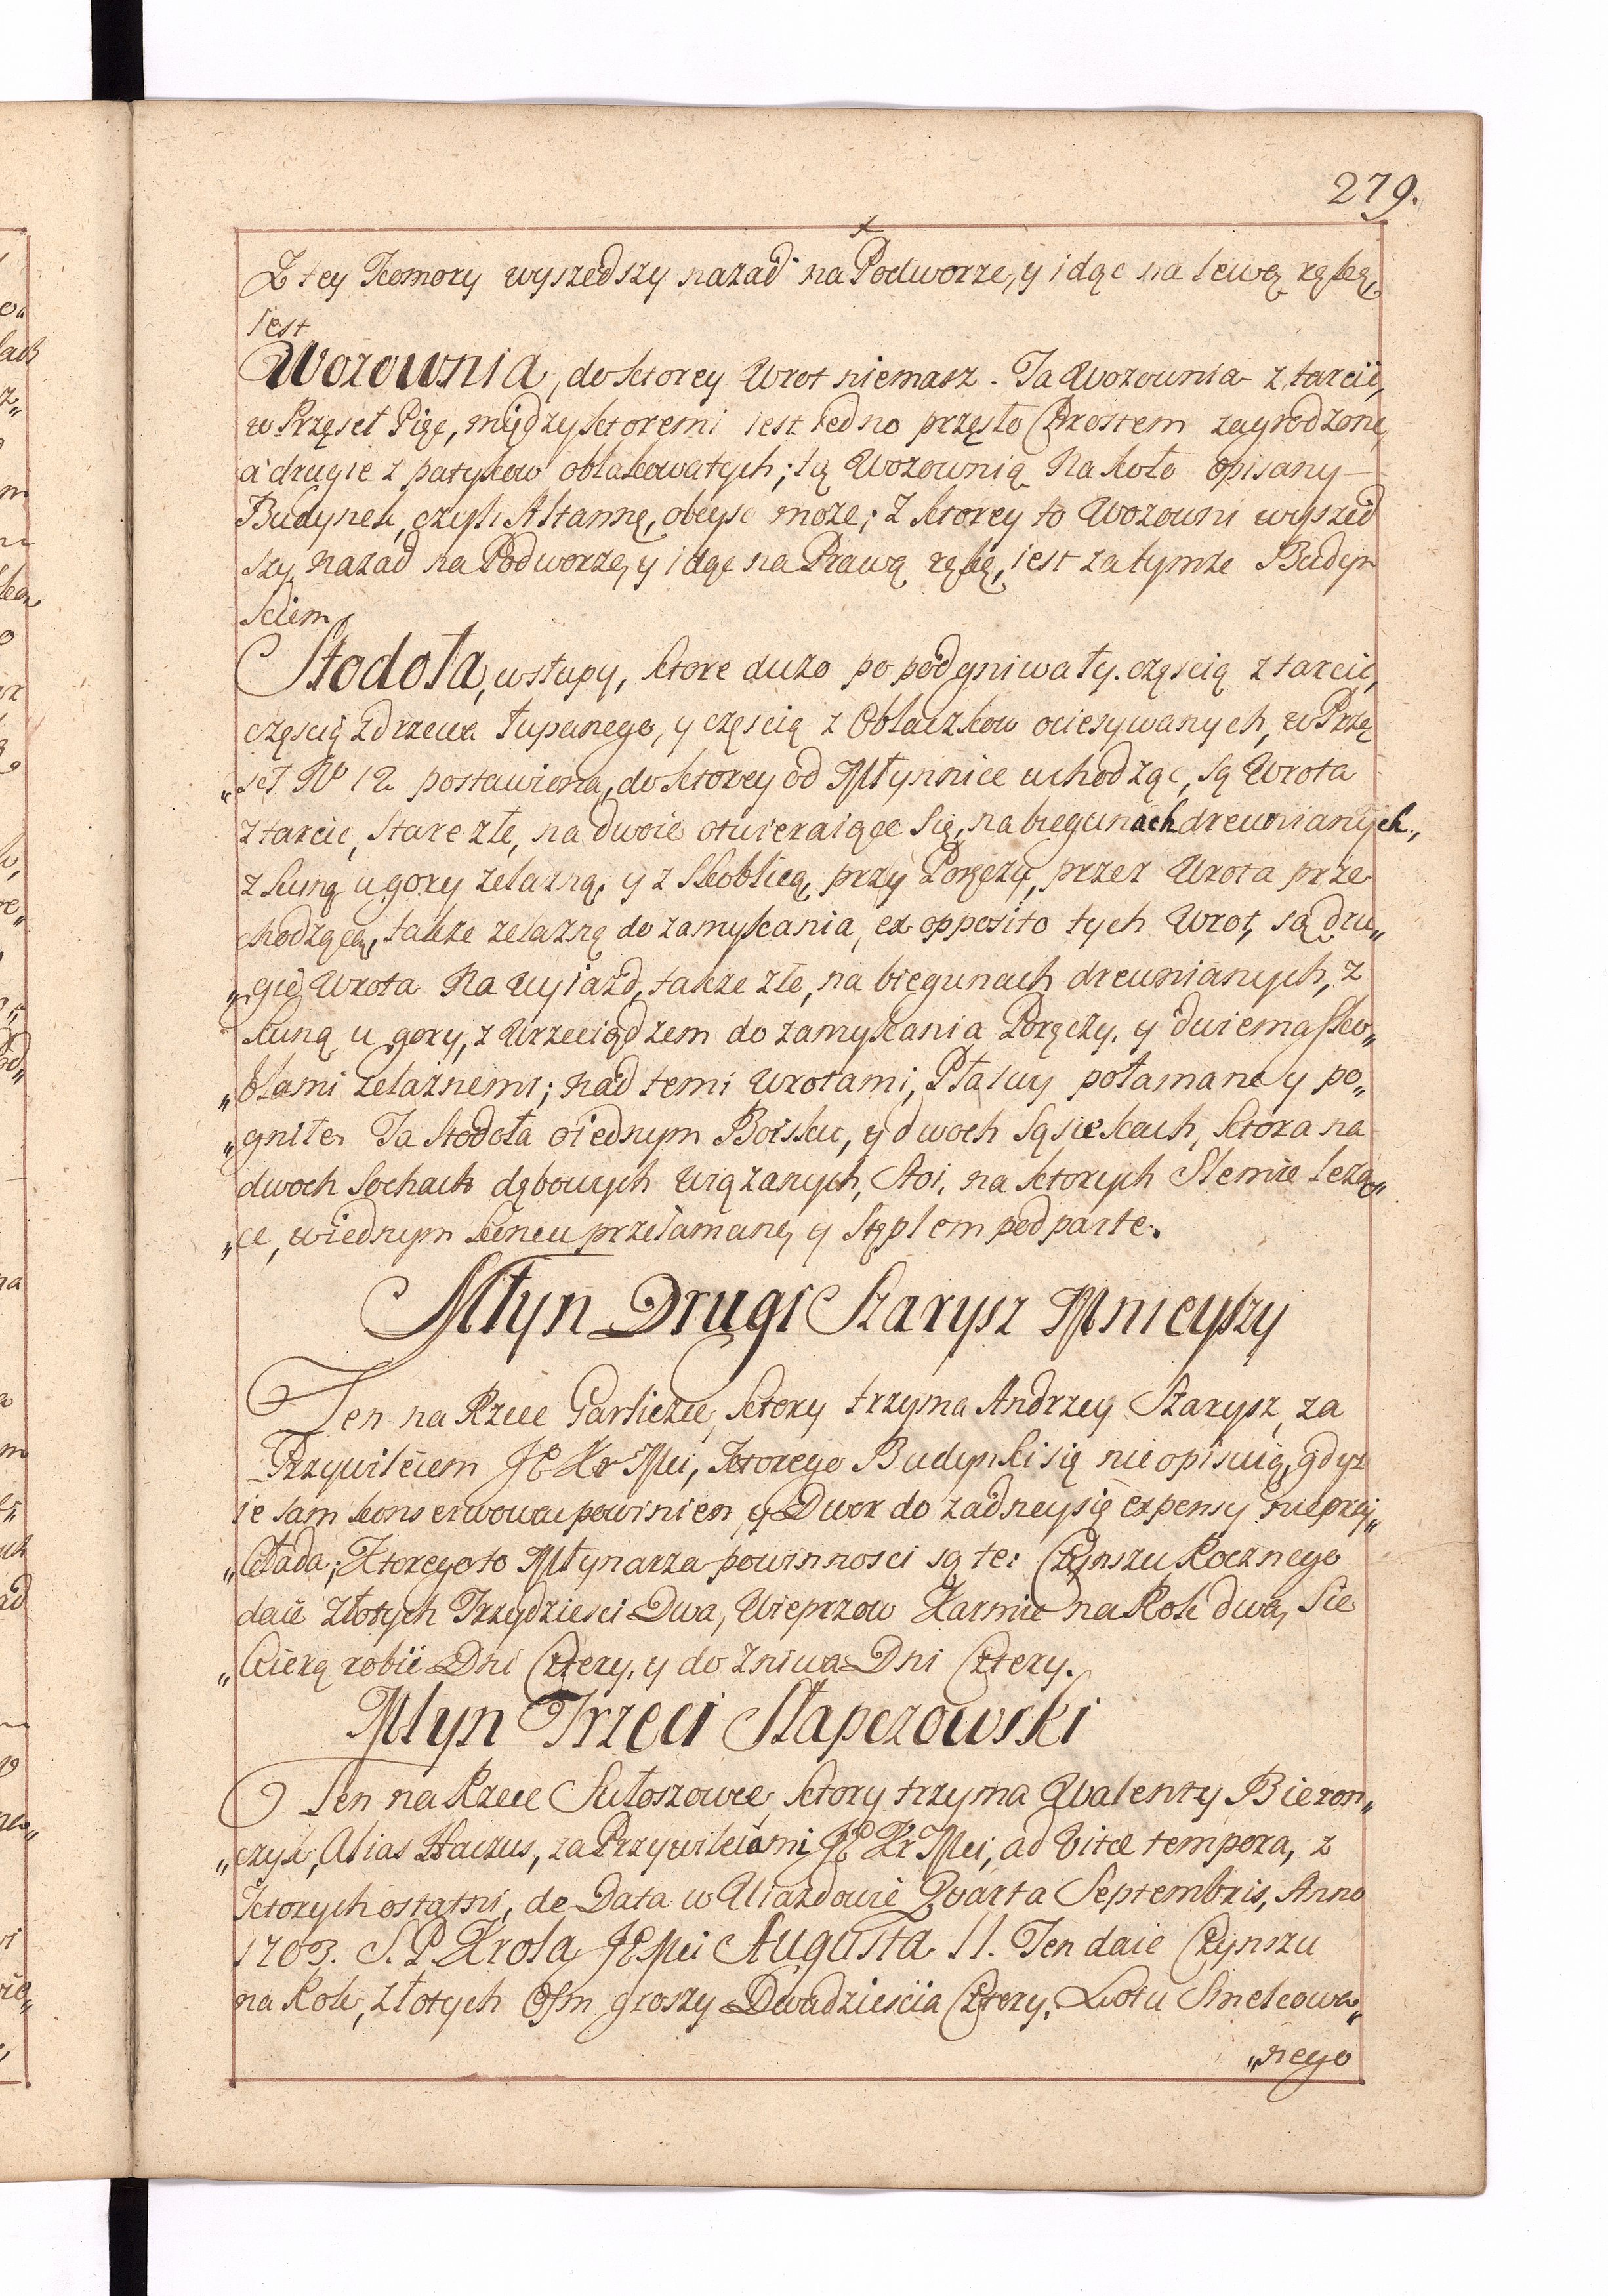 279.
Z tey Komory wyszedszy nazad na Podworze, y idąc na lewą rękę,
iest
Wozownia, do ktorey Wrot niemasz. Ta Wozownia z tarcic,
w Przęseł Pięc, między ktoremi iest iedno przęsło Chrostem zagrodzone,
a drugie z patykow obłakowatych; tą Wozownią Na koło opisany
Budynek, czyli Altannę, obeysc moze; Z ktorey to Wozowni wyszed
szy nazad na Podworze, y idąc na Prawą rękę, iest za tymze Budyn
kiem
Stodoła, w słupy, ktore duzo popodgniwały. częscią z tarcic,
częscią z drzewa łupanego, y częscią z Obłaczkow ociesywanych, w Przę
„seł No 12 postawiona, do ktorey od Młynnice uchodząc, są Wrota
z tarcic, stare złe, na dwoie otwieraiące się, na biegunach drewnianych,
z kuną u gory zelazną, y z Skoblicą, przy Poręczy, przez Wrota prze
chodzącą, także zelazną do zamykania, ex opposito tych Wrot, są dru„
„gie Wrota Na wyiazd, także złe, na biegunach drewnianych, z
kuną u gory, z Wrzeciądzem do zamykania Poręczy, y dwiema sko„
„blami zelaznemi; nad temi wrotami, Płatwy połamane y po„
„gniłe. Ta stodoła o iednym Boisku, y dwoch Sąsiekach, ktora na
dwoch Sochach dębowych wiązanych, stoi, na ktorych Slemie lezą„
„ce, w iednym koncu przełamane, y Stęplem podparte.
Młyn Drugi Szarysz Mnieyszy
Ten na Rzece Garliczce, ktory trzyma Andrzey Szarysz, za
Przywileiem JE Kr Mci, ktorego Budynki się nie opisuią, gdyz
ie sam konserwowac powinien, y Dwor do zadney się expensy nieprzy„
„kłada; Ktorego to Młynarza powinnosci są te: Czynszu Rocznego
daie złotych Trzydziesci Dwa, Wieprzow Karmic na Rok dwa, Sie
„kierą robic Dni Cztery, y do Zniwa Dni Cztery.
Młyn Trzeci Słapczowski
Ten na Rzece Sułoszowce, ktory trzyma Walenty Bieron„
„czyk, Alias Haczus, za Przywileiami JE Kr Mci, ad Vitæ tempora, z
ktorych ostatni, de Data w Uiazdowie Quarta Septembris, Anno
1703. S. P. Krola JEMci Augusta II. Ten daie Czynszu
na Rok, złotych Osm groszy Dwadziescia Cztery. Łoiu Smelcowa„
„nego